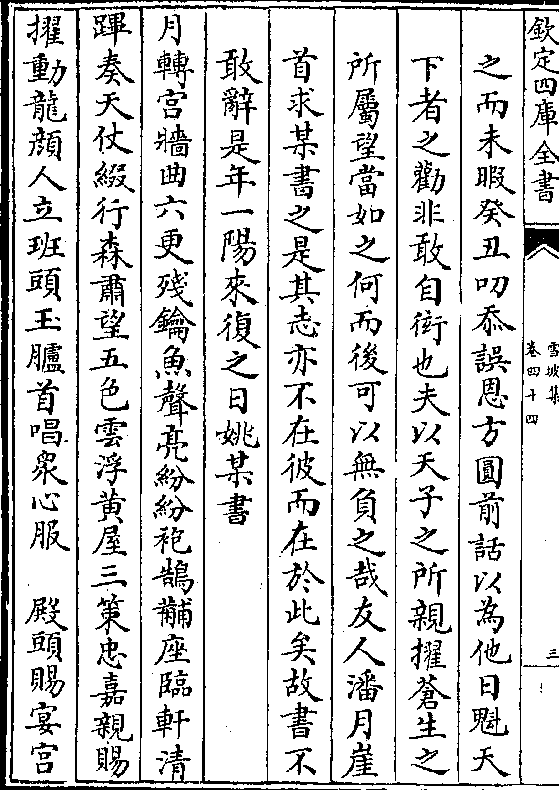 欽定四庫全書
雪坡集
卷四十四
三
之而未暇癸丑叨忝誤恩方圓前話以為他日魁天
下者之勸非敢自衒也夫以天子之所親擢蒼生之
所屬望當如之何而後可以無負之哉友人潘月崖
首求某書之是其志亦不在彼而在於此矣故書不
敢辭是年一陽來復之日姚某書
月轉宮牆曲六更殘鑰魚聲亮紛紛袍鵠黼座臨軒清
蹕奏天仗綴行森肅望五色雲浮黃屋三策忠嘉親賜
擢動龍顔人立班頭玉臚首唱衆心服　殿頭賜宴宮